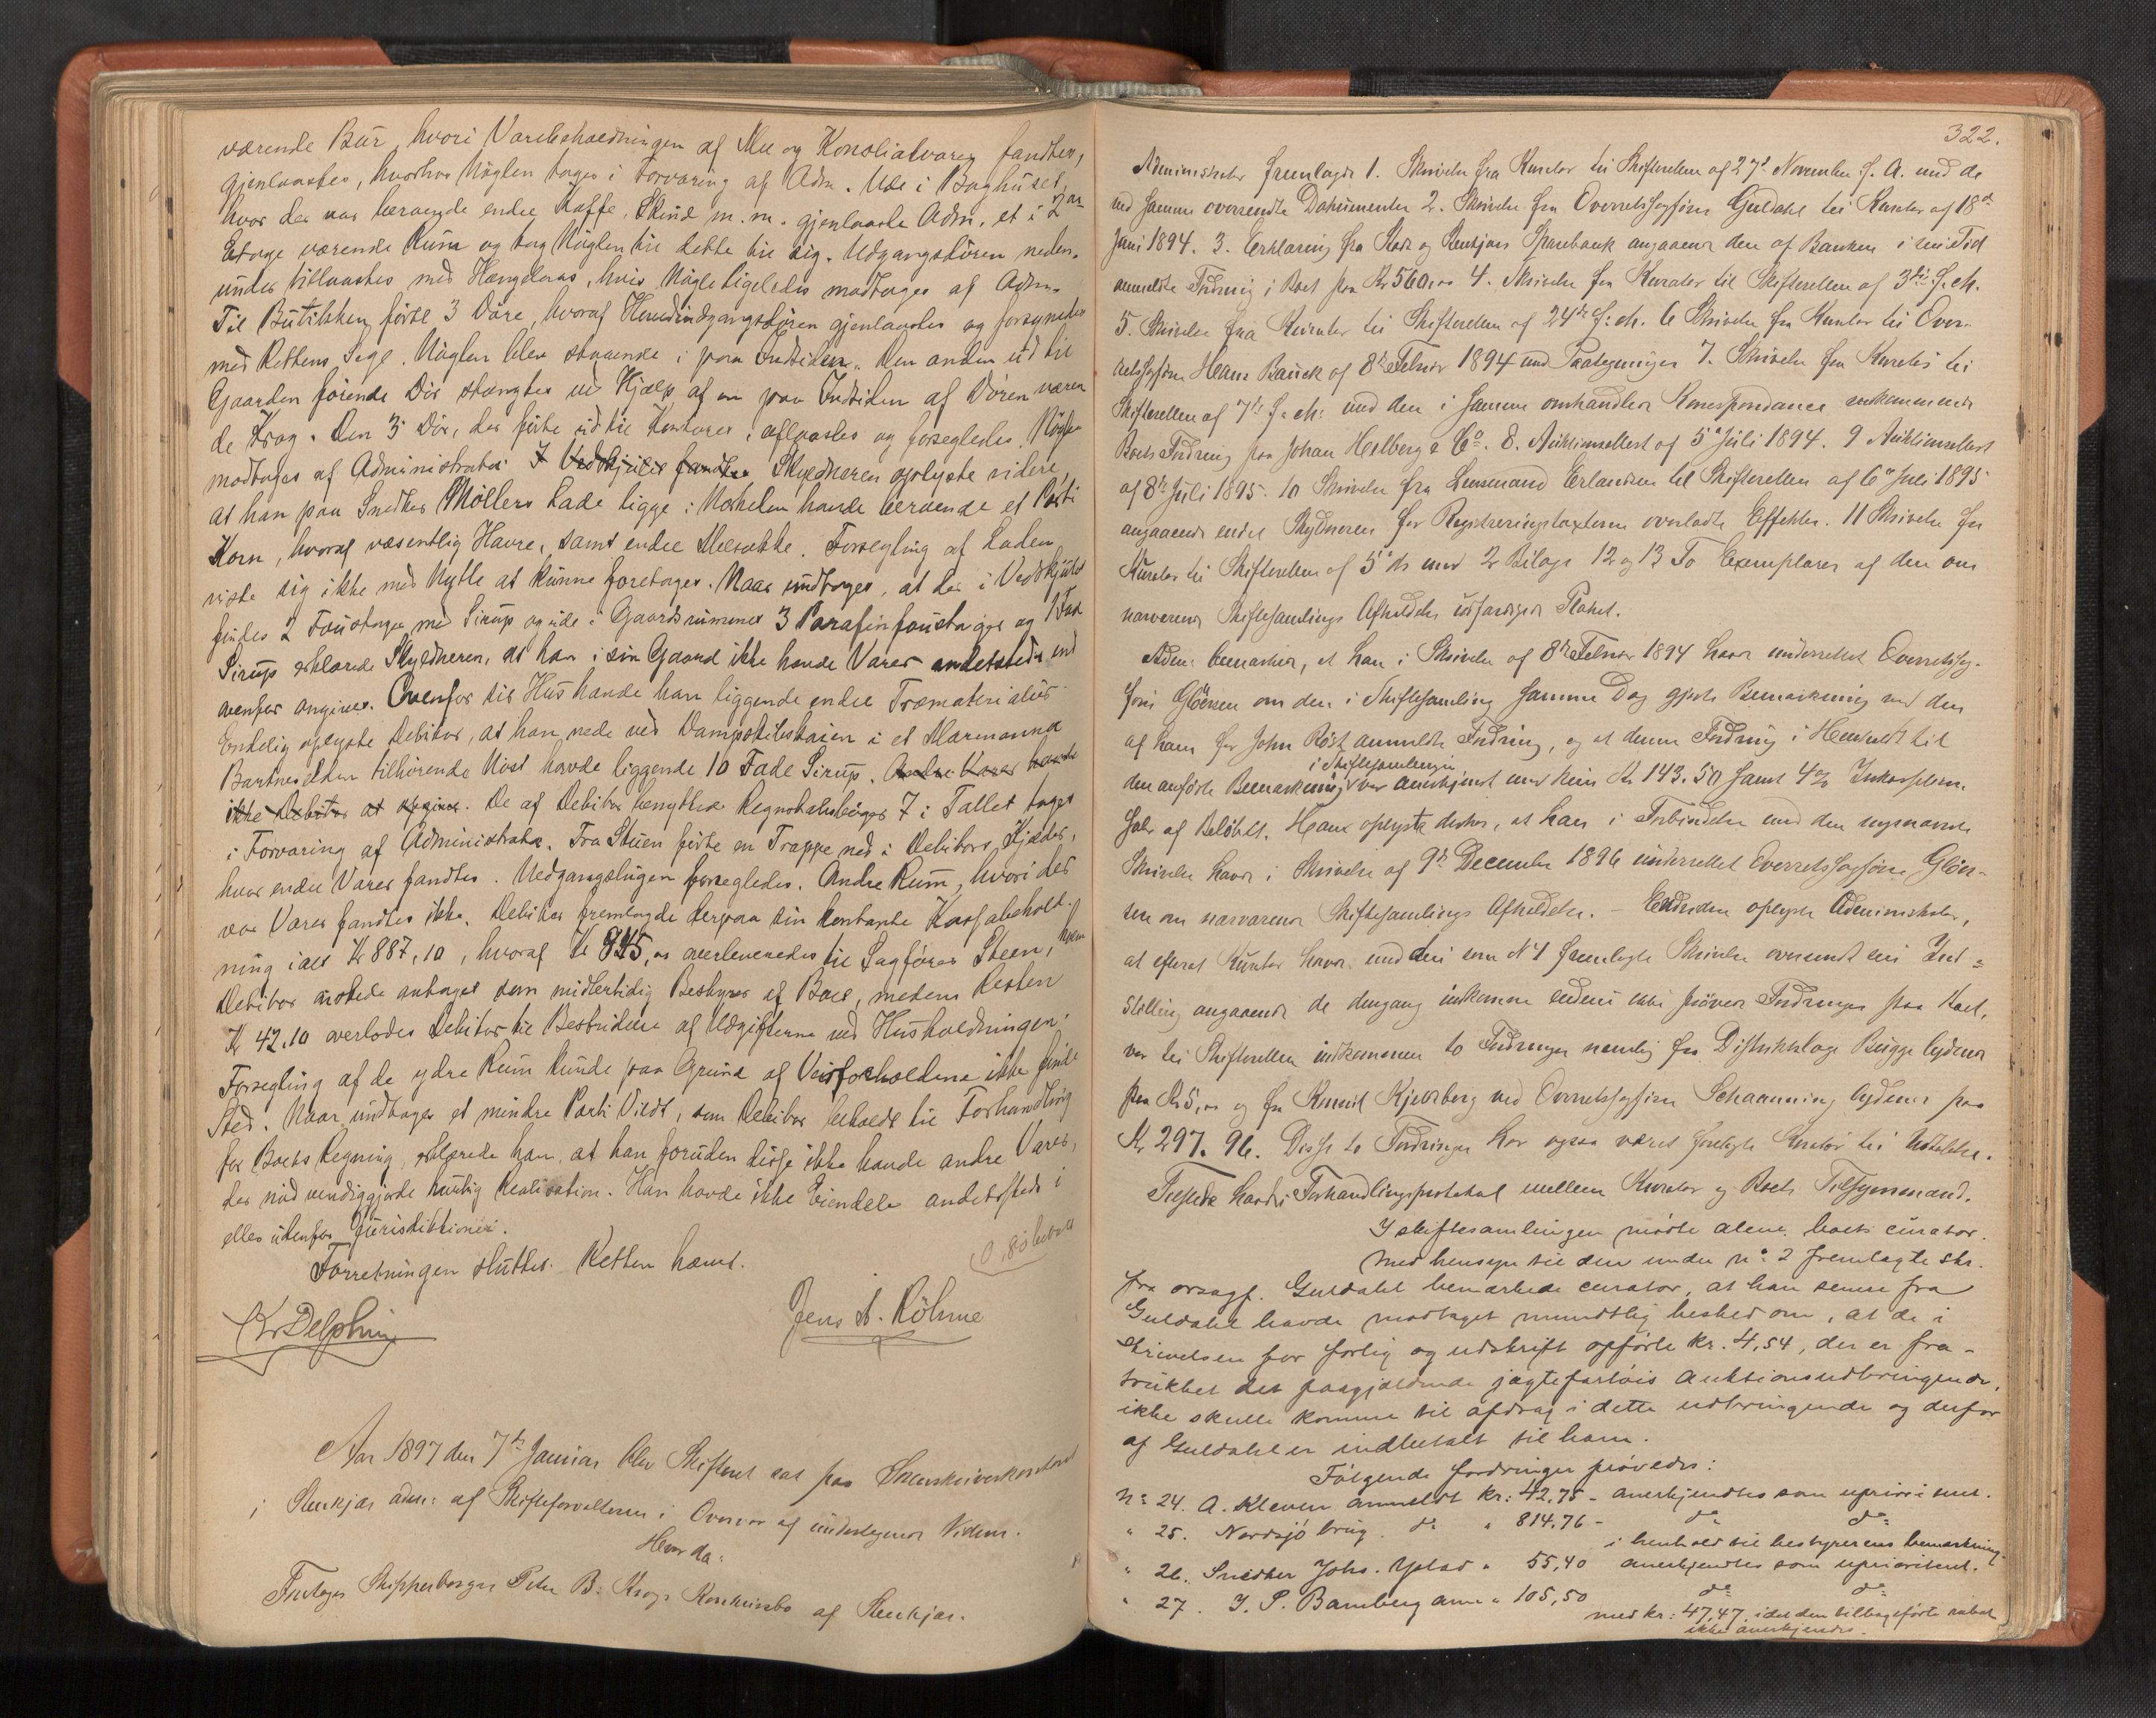 værende Bur, hvori Varebeholdningen af Mel og Kolonialvarer fandtes,
gjenlaastes, hvorhos Nøglen toges i Forvaring af Adm. Ude i Baghuset,
hvor der var beroende endel Kaffe, Skind m. m. gjenlaaste Adm. et i 2den
Etage værende Rum og tog Nøglen til dette til sig. Udgangsdøren neden-
under tillaastes med Hængelaas, hvis Nøgle ligeledes modtoges af Adm.
Til Butikken førte 3 Døre, hvoraf Hovedindgangsdøren gjenlaastes og forsynedes
med Rettens Segl. Nøglen blev staaende i paa Indsiden. Den anden ud til
Gaarden førende Dør stængtes ved Hjælp af en paa Indsiden af Døren væren
de Krog. Den 3 Dør, der førte ud til Kontoret, aflaastes og forsegledes. Nøglen
modtoges af Administrator. I Vedskjulet fandtes Skyldneren oplyste videre,
at han paa Snedker Møllers Lade ligge i Nordsileiren havde beroende et Parti
Korn, hvoraf væsentlig Havre, samt endel Melsække. Forsegling af Laden
viste sig ikke med Nytte at kunne foretages. Naar undtages, at der i Vedskjulet
findes 2 Foustager med Sirup og ude i Gaardsrummet 3 Parafinfoustager og 1 Fad
Sirup erklærede Skyldneren, at han i sin Gaard ikke havde Varer andetsteds end
ovenfor angivet. Ovenfor sit Hus havde han liggende endel Træmaterialier.
Endelig oplyste Debitor, at han nede ved Dampskibskaien i et Marmanna
Bartnes elder tilhørende Nøst havde liggende 10 Fade Sirup. Andre Varer havde
ikke Debitor at opgive. De af Debitor benyttede Regnskabsbøger 7 i Tallet toges
i Forvaring af Administrator. Fra Stuen førte en Trappe ned i Debitors Kjelder,
hvor endel Varer fandtes. Nedgangslugen forsegledes. Andre Rum, hvori der
var Varer fandtes ikke. Debitor fremlagde derpaa sin kontante Kassabehold-
ning ialt Kr 887,10, hvoraf Kr 845,00 overleveredes til Sagfører Steen, hvem
Debitor ønskede antaget som midlertidig Bestyrer af Boet, medens Resten
Kr 42.10 overlodes Debitor til Bestridelse af Udgifterne ved Husholdningen.
Forsegling af de ydre Rum kunde paa Grund af Veirforholdene ikke finde
Sted. Naar undtages et mindre Parti Vildt, som Debitor beholdt til Forhandling
for Boets Regning, erklærede han, at han foruden disse ikke havde andre Varer,
der nødvendiggjorde hurtig Realisation. Han havde ikke Eiendele andetsteds i
eller udenfor Jurisdiktionen.
Forretningen sluttet. Retten hævet.
O,80 betalt
Kr Delphin
Jens A. Röhme
Aar 1897 den 7de Januar blev Skifteret sat paa Sorenskriverkontoret
i Stenkjær adm: af Skifteforvalteren i Overvær af undertegnede Vidner.
Hvor da:
Foretoges Skipperborger Peter B. Krogs Konkursbo af Stenkjær.
322.
Administrator fremlagde 1. Skrivelse fra Kurator til Skifteretten af 27de November f. A. med de
med samme oversendte Dokumenter 2. Skrivelse fra Overretssagfører Guldahl til Kurator af 18de
Juni 1894. 3. Erklæring fra Stod og Stenkjærs Sparebank angaaende den af Banken i sin Tid
anmeldte Fordring i Boet stor Kr 560,00 4. Skrivelse fra Kurator til Skifteretten af 3die f. M.
5. Skrivelse fra Kurator til Skifteretten af 24de f. M. 6 Skrivelse fra Kurator til Over-
retssagfører Hans Bauck af 8de Februar 1894 med Paategninger 7. Skrivelse fra Kurator til
Skifteretten af 7de f. M. med den i samme omhandlede Korrespondance vedkommende
Boets Fordring paa Johan Helberg & Co. 8. Auktionsattest af 5te Juli 1894. 9 Auktionsattest
af 8de Juli 1895. 10 Skrivelse fra Lensmand Erlandsen til Skifteretten af 6te Juli 1895
angaaende endel Skyldneren før Registreringstaxten overladte Effekter. 11 Skrivelse fra
Kurator til Skifteretten af 5te ds med 2 Bilage 12 og 13 To Exemplarer af den om
nærværende Skiftesamlings Afholdelse udfærdigede Plakat.
Adm: bemærker, at han i Skrivelse af 8de Februar 1894 havde underrettet Overretssag-
fører Gløersen om den i Skiftesamling samme Dag gjorte Bemærkning ved den
af ham for John Röst anmeldte Fordring, og at denne Fordring i Henhold til
i Skiftesamlingen
den anførte Bemærkning var anerkjendt med kun Kr 143.50 samt 4% Inkassation.
Salær af Beløbet. Han oplyste derhos, at han i Forbindelse med den nysnævnte
Skrivelse havde i Skrivelse af 9de December 1896 underrettet Overretssagfører Gløer-
sen om nærværende Skiftesamlings Afholdelse. – Endvidere oplyste Administrator,
at efterat Kurator havde med den som N 1 fremlagte Skrivelse oversendt sin Ind-
stilling angaaende de dengang indkomne endnu ikke prøvede Fordringer paa Boet,
var til Skifteretten indkommen to Fordringer nemlig fra Distriktslæge Bugge lydende
paa Kr 5,00 og fra Knud Kjelsberg ved Overretssagfører Schaanning lydende paa
Kr 297.96. Disse to Fordringer har ogsaa været forelagte Kurator til Udtalelse.
Tilstede havdes Forhandlingsprotokol mellem Kurator og Boets Tilsynsmand.
I skiftesamlingen mødte alene boets curator.
Med hensyn til den under no 2 fremlagte skr.
fra orsagf. Guldahl bemærkede curator, at han senere fra
Guldahl havde modtaget mundtlig besked om, at de i
skrivelsen for forlig og udskrift opførte kr. 4,54, der er fra-
trukket det paagjældende jagtefartøis auktionsudbringende,
ikke skulle komme til afdrag i dette udbringende og derfor
af Guldahl er indbetalt til ham.
Følgende fordringer prøvedes:
No 24. A. Kleven anmeldt kr: 42,75 – anerkjendtes som uprioriteret.
" 25. Nordsjø brug. do " 814,76 – do do
i henhold til bestyrerens bemærkning.
" 26. Snedker Johs. Ystad " 55,40 anerkjendtes som uprioriteret.
" 27. J. P. Bamberg anm " 105,50 do do
med kr: 47,47, idet den tilbageførte rabat
ikke anerkjendes.